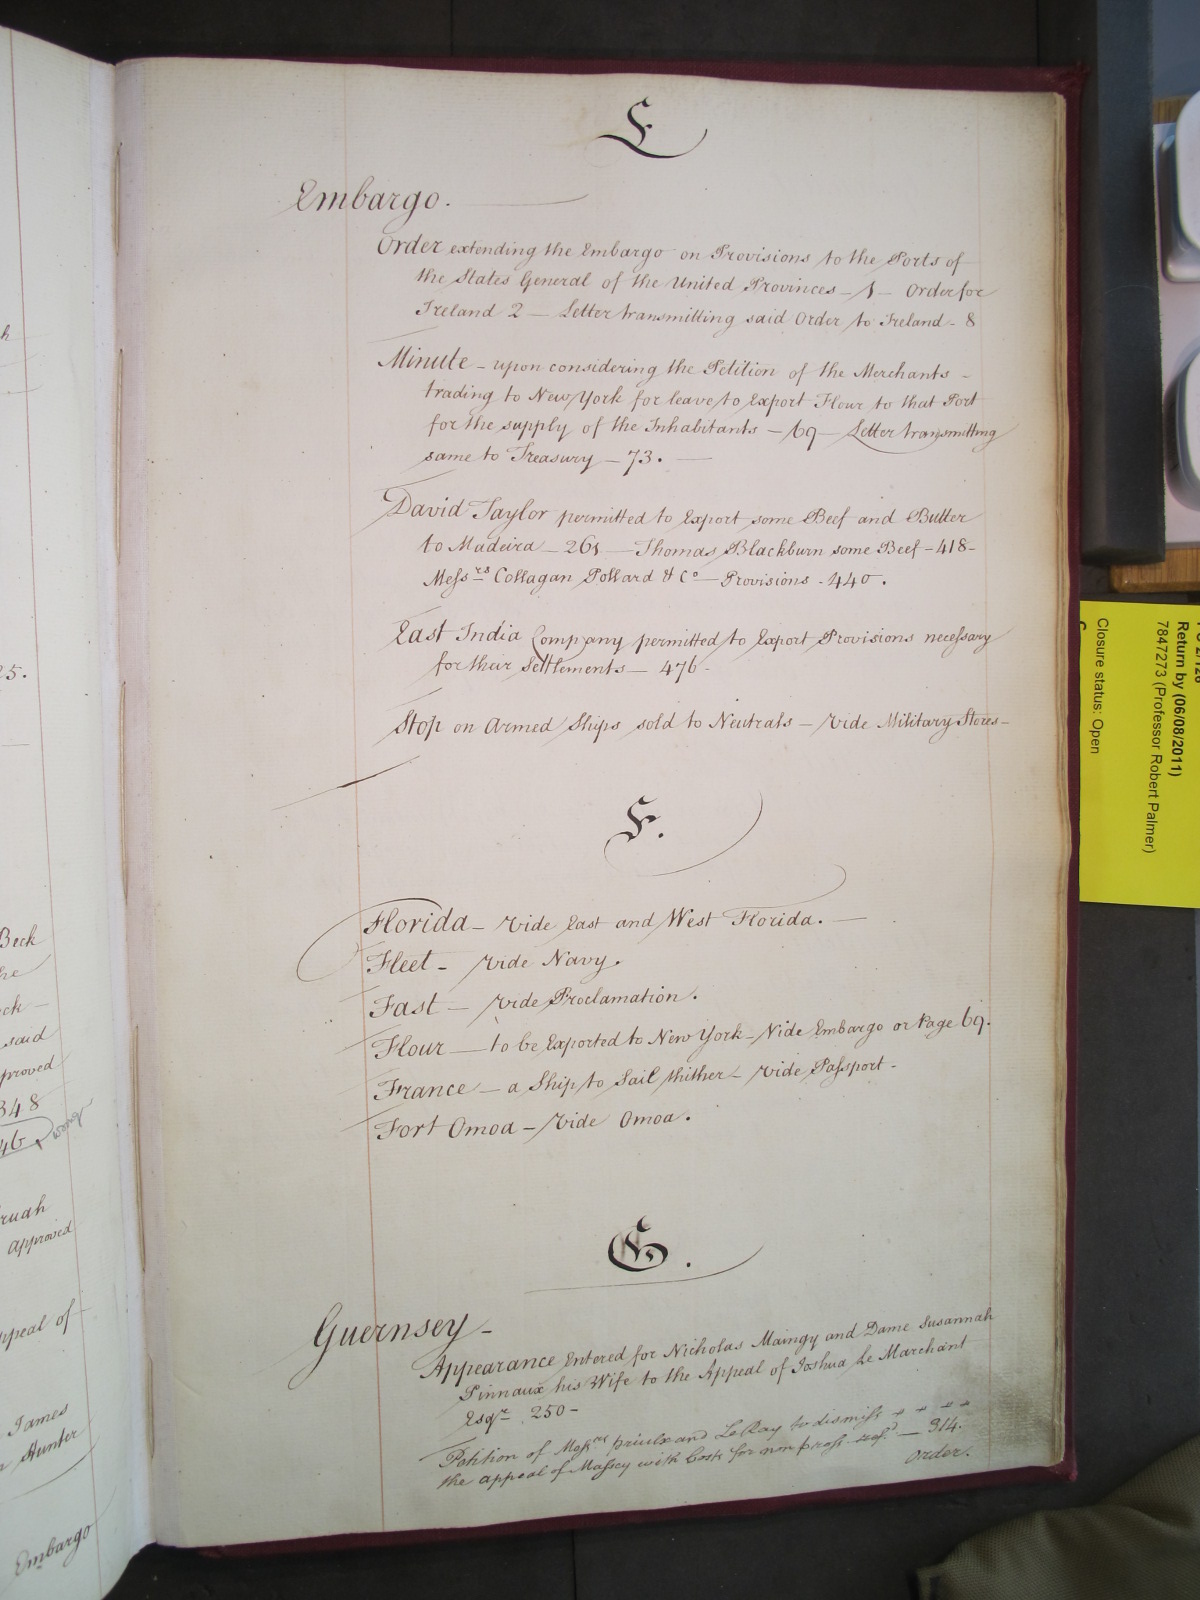 E
Embargo.
Order extending the Embargo on Provisions to the Ports of
the States General of the United Provinces – 1 – Order for
Ireland 2 – Letter transmitting said Order to Ireland - 8
Minute – upon considering the Petition of the Merchants –
trading to New York for leave to Export Flour to that Port
for the supply of the Inhabitants – 69 – Letter transmitting
same to Treasury – 73. —
David Taylor permitted to Export some Beef and Butter
to Madeira – 261 – Thomas Blackburn some Beef – 418 –
Messrs Collagan Pollard & Co – Provisions - 440.
East India Company permitted to Export Provisions necessary
for their Settlements – 476 -
Stop on Armed Ships sold to Neutrals – Vide Military Stores –
F.
Florida – Vide East and West Florida. —
Fleet – Vide Navy.
Fast – Vide Proclamation.
Flour – to be Exported to New York – Vide Embargo or Page 69.
France – a Ship to Sail thither – Vide Passport -
Fort Omoa – Vide Omoa.
G.
Guernsey –
Appearance Entered for Nicholas Maingy and Dame Susannah
Pinnaux his Wife to the Appeal of Joshua Le Marchant
Esqr 250 –
Petition of Messrs priulx and Le Ray to dismiss
the appeal of Massey with Costs for non pross. – 314.
order.
h
25.
Beck
he
ck –
said
proved
348
46 wrong
ruah
approved
ppeal of –
James
Hunter
Embargo
Return by (06/08/2011)
7847273 (Professor Robert Palmer)
Closure status: Open